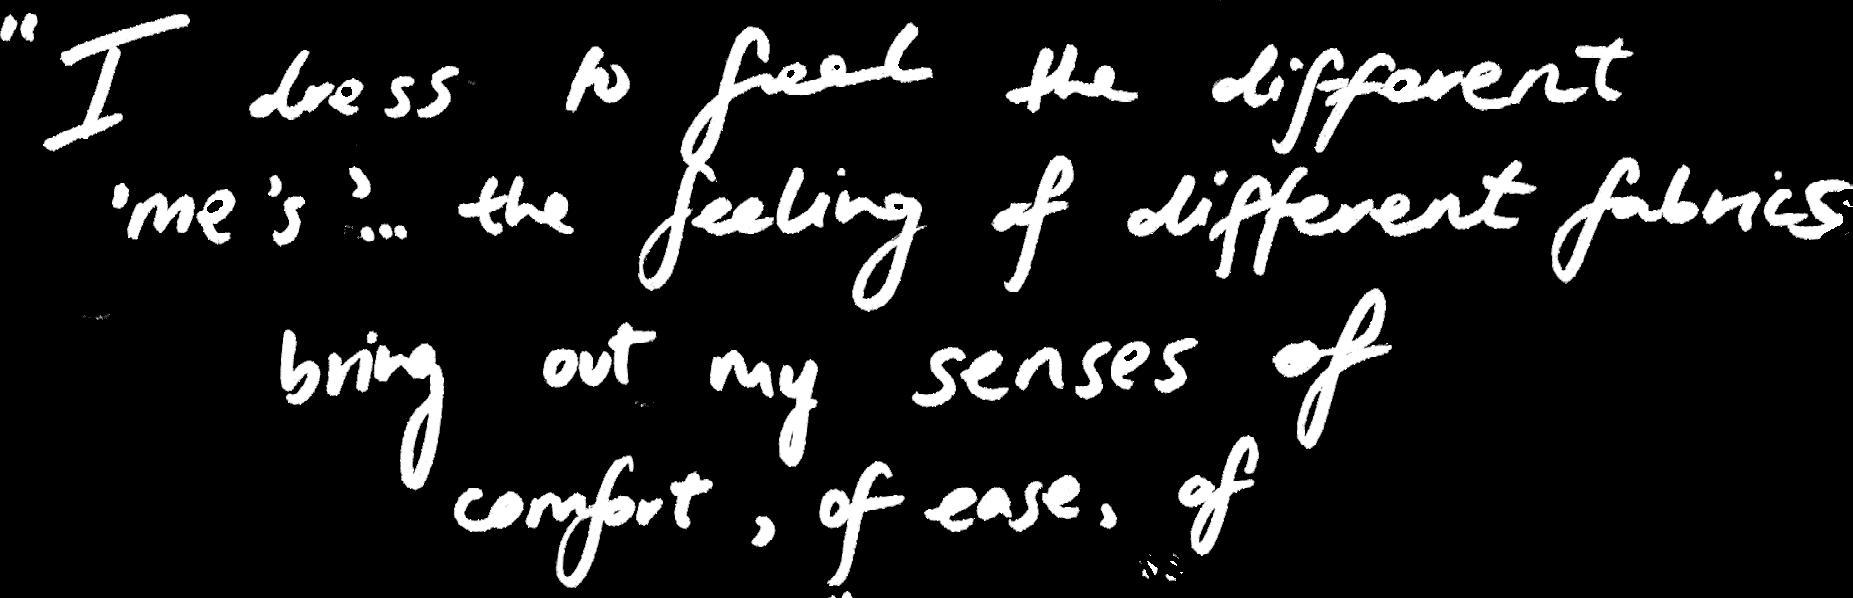 "I dress to feel the different
'me's'... the feeling of different fabrics
bring out my senses of
comfort, of ease, of